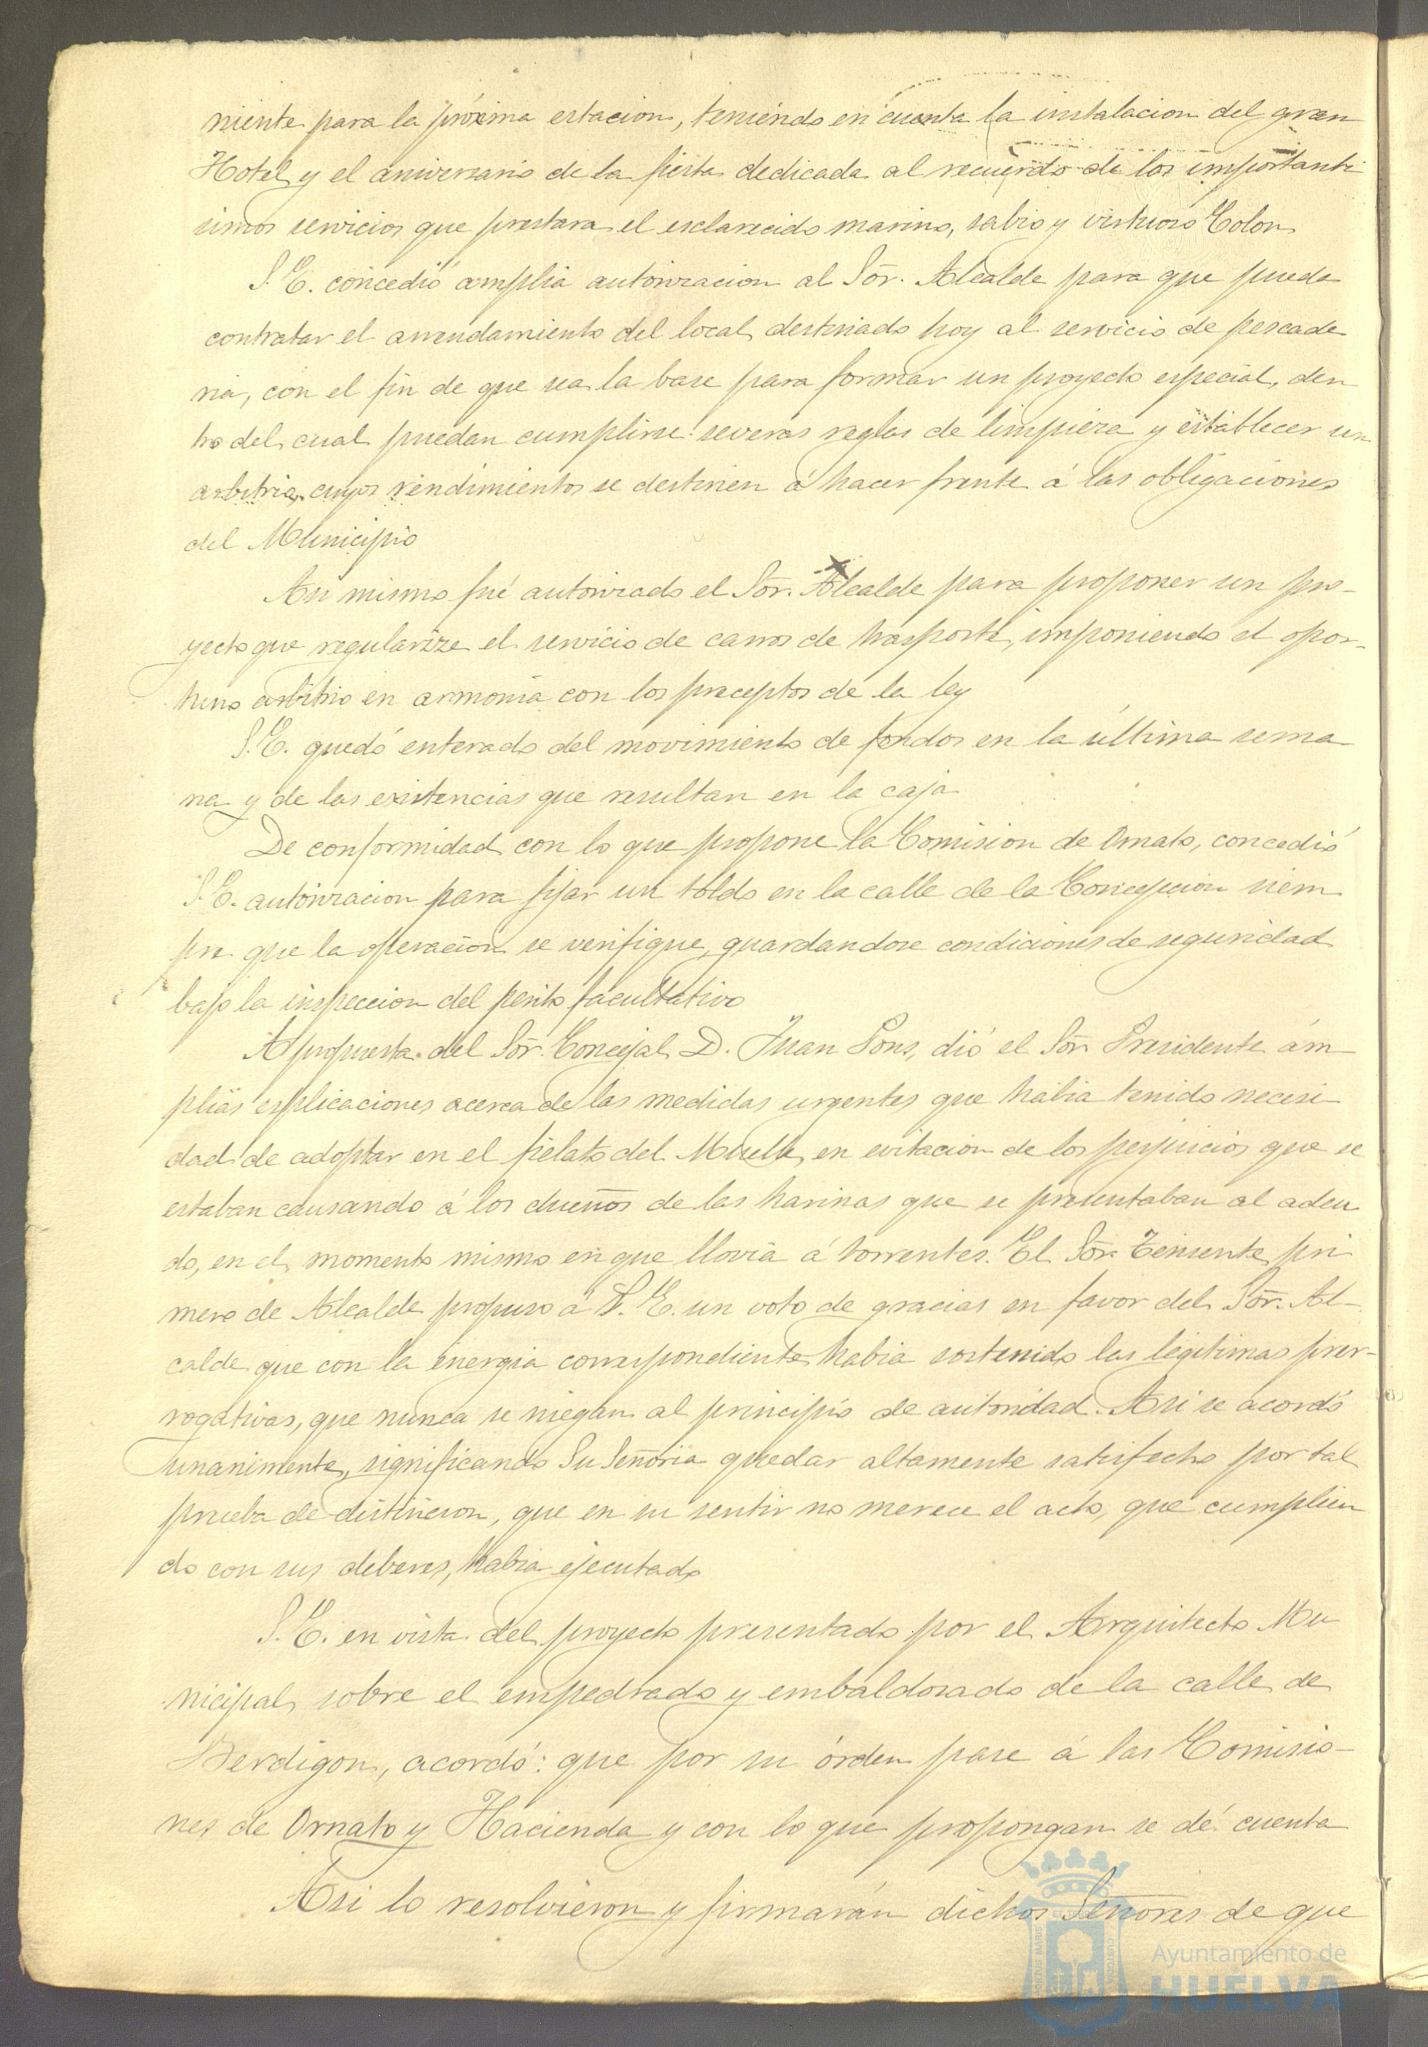 niente para la próxima estacion, teniendo en cuenta la instalacion del gran
Hotel y el aniversario de la fiesta dedicada al recuerdo de los importanti
simos servicios que prestara el esclarecido marino, sabio y virtuoso Colon
S. E. concedió amplia autorizacion al Sõr. Alcalde para que pueda
contratar el arrendamiento del local destinado hoy al servicio de pescade
ria, con el fin de que sea la base para formar un proyecto especial, den
tro del cual puedan cumplirse severas reglas de limpieza y establecer un
arbitrio cuyos rendimientos se destinen á hacer frente á las obligaciones
del Municipio
Asi mismo fué autorizado el Sõr. Alcalde para proponer un pro-
yecto que regularize el servicio de carros de trasporte, imponiendo el opor-
tuno arbitrio en armonia con los preceptos de la ley
S. E. quedó enterado del movimiento de fondos en la última sema
na y de las existencias que resultan en la caja
De conformidad con lo que propone la Comision de Ornato, concedió
S. E. autorizacion para fijar un toldo en la calle de la Concepcion siem
pre que la operacion se verifique, guardandose condiciones de seguridad
bajo la inspeccion del perito facultativo
A propuesta del Sõr. Concejal D. Juan Pons, dió el Sõr Presidente ám-
plias esplicaciones acerca de las medidas urgentes que habia tenido necesi
dad de adoptar en el fielato del Muelle, en evitacion de los perjuicios que se
estaban causando á los dueños de las harinas que se presentaban al adeu
do, en el momento mismo en que llovia á torrentes. El Sõr. Teniente pri
mero de Alcalde propuso á S. E. un voto de gracias en favor del Sõr. Al-
calde que con la energia correspondiente habia sostenido las legitimas prer-
rogativas, que nunca se niegan al principio de autoridad. Asi se acordó
unanimente, significando Su Señoria quedar altamente satisfecho por tal
prueba de distincion, que en su sentir no merece el acto, que cumplien
do con sus deberes, habia ejecutado
S. E. en vista del proyecto presentado por el Arquitecto Mu
nicipal, sobre el empedrado y embaldosado de la calle de
Berdigon, acordó: que por su órden pase á las Comisio-
nes de Ornato y Hacienda y con lo que propongan se dé cuenta
Asi lo resolvieron y firmarán dichos Señores de que
Ayuntamiento de
HUELVA